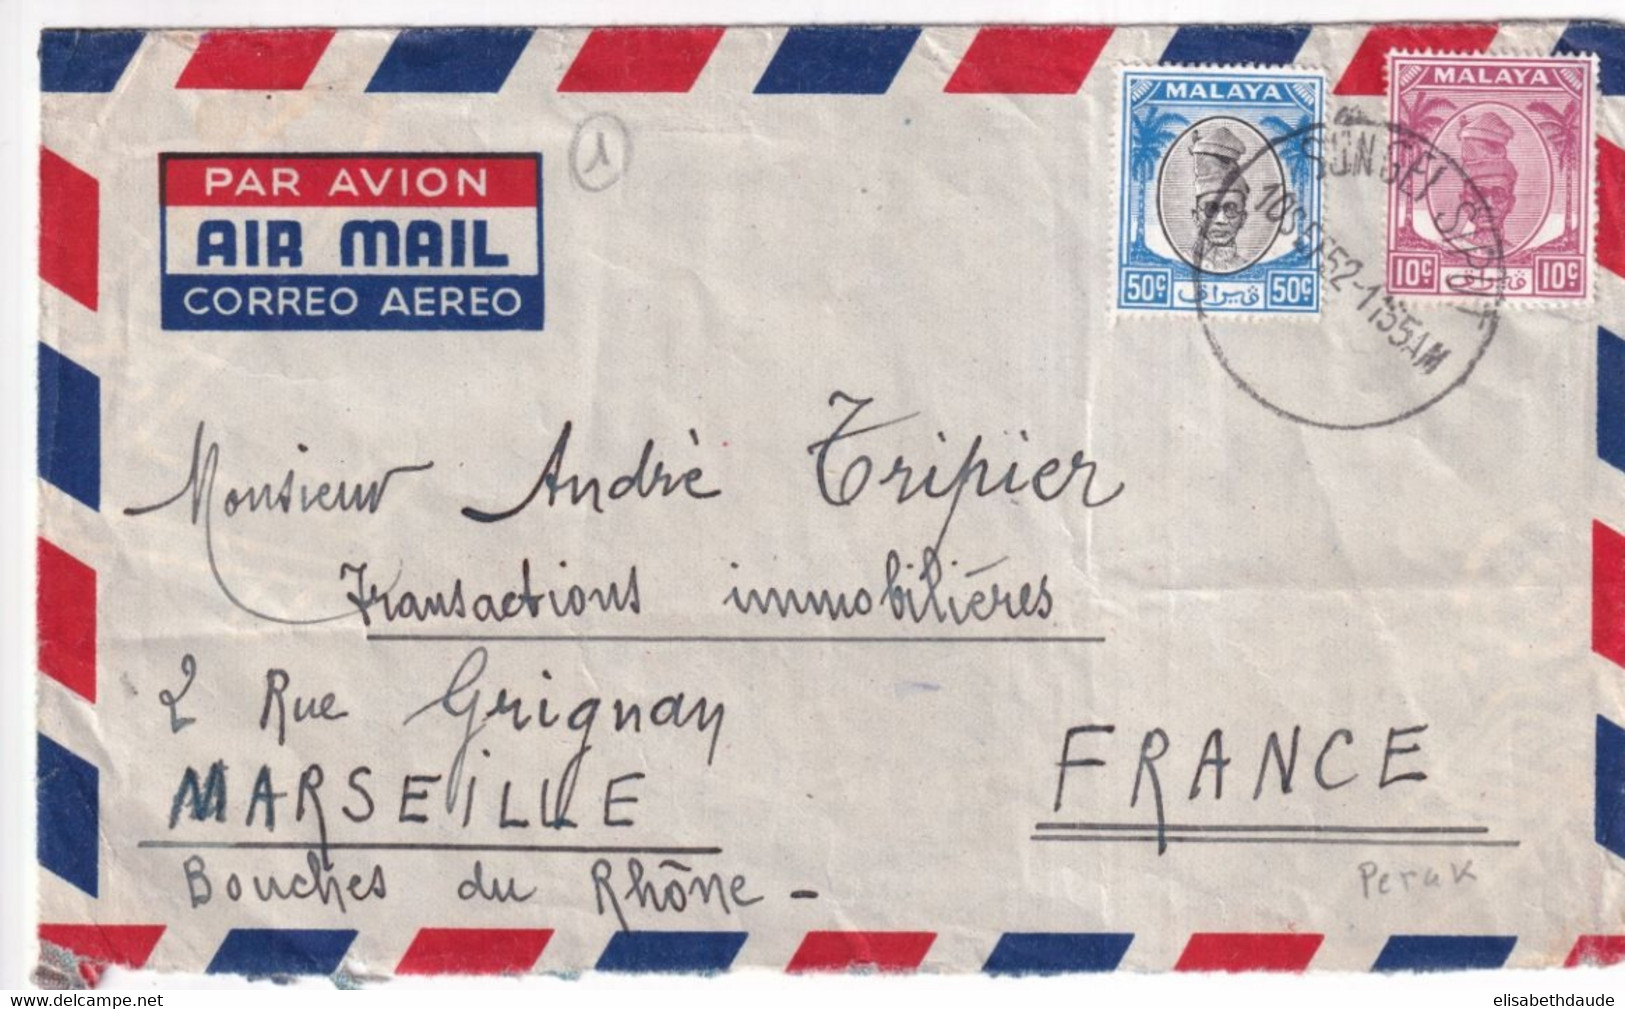 PAR AVION
AIR MAIL
CORREO AEREO
1
MALAYA
50c قيراق 50c
MALAYA
10c قيراق 10c
SUNGEI SIPUT
10 SE 52-1155AM
Monsieur André Tripier
Transactions immobilières
2 Rue Grignan
MARSEILLE
FRANCE
Bouches du Rhône -
Perak
delcampe.net
elisabethdaude